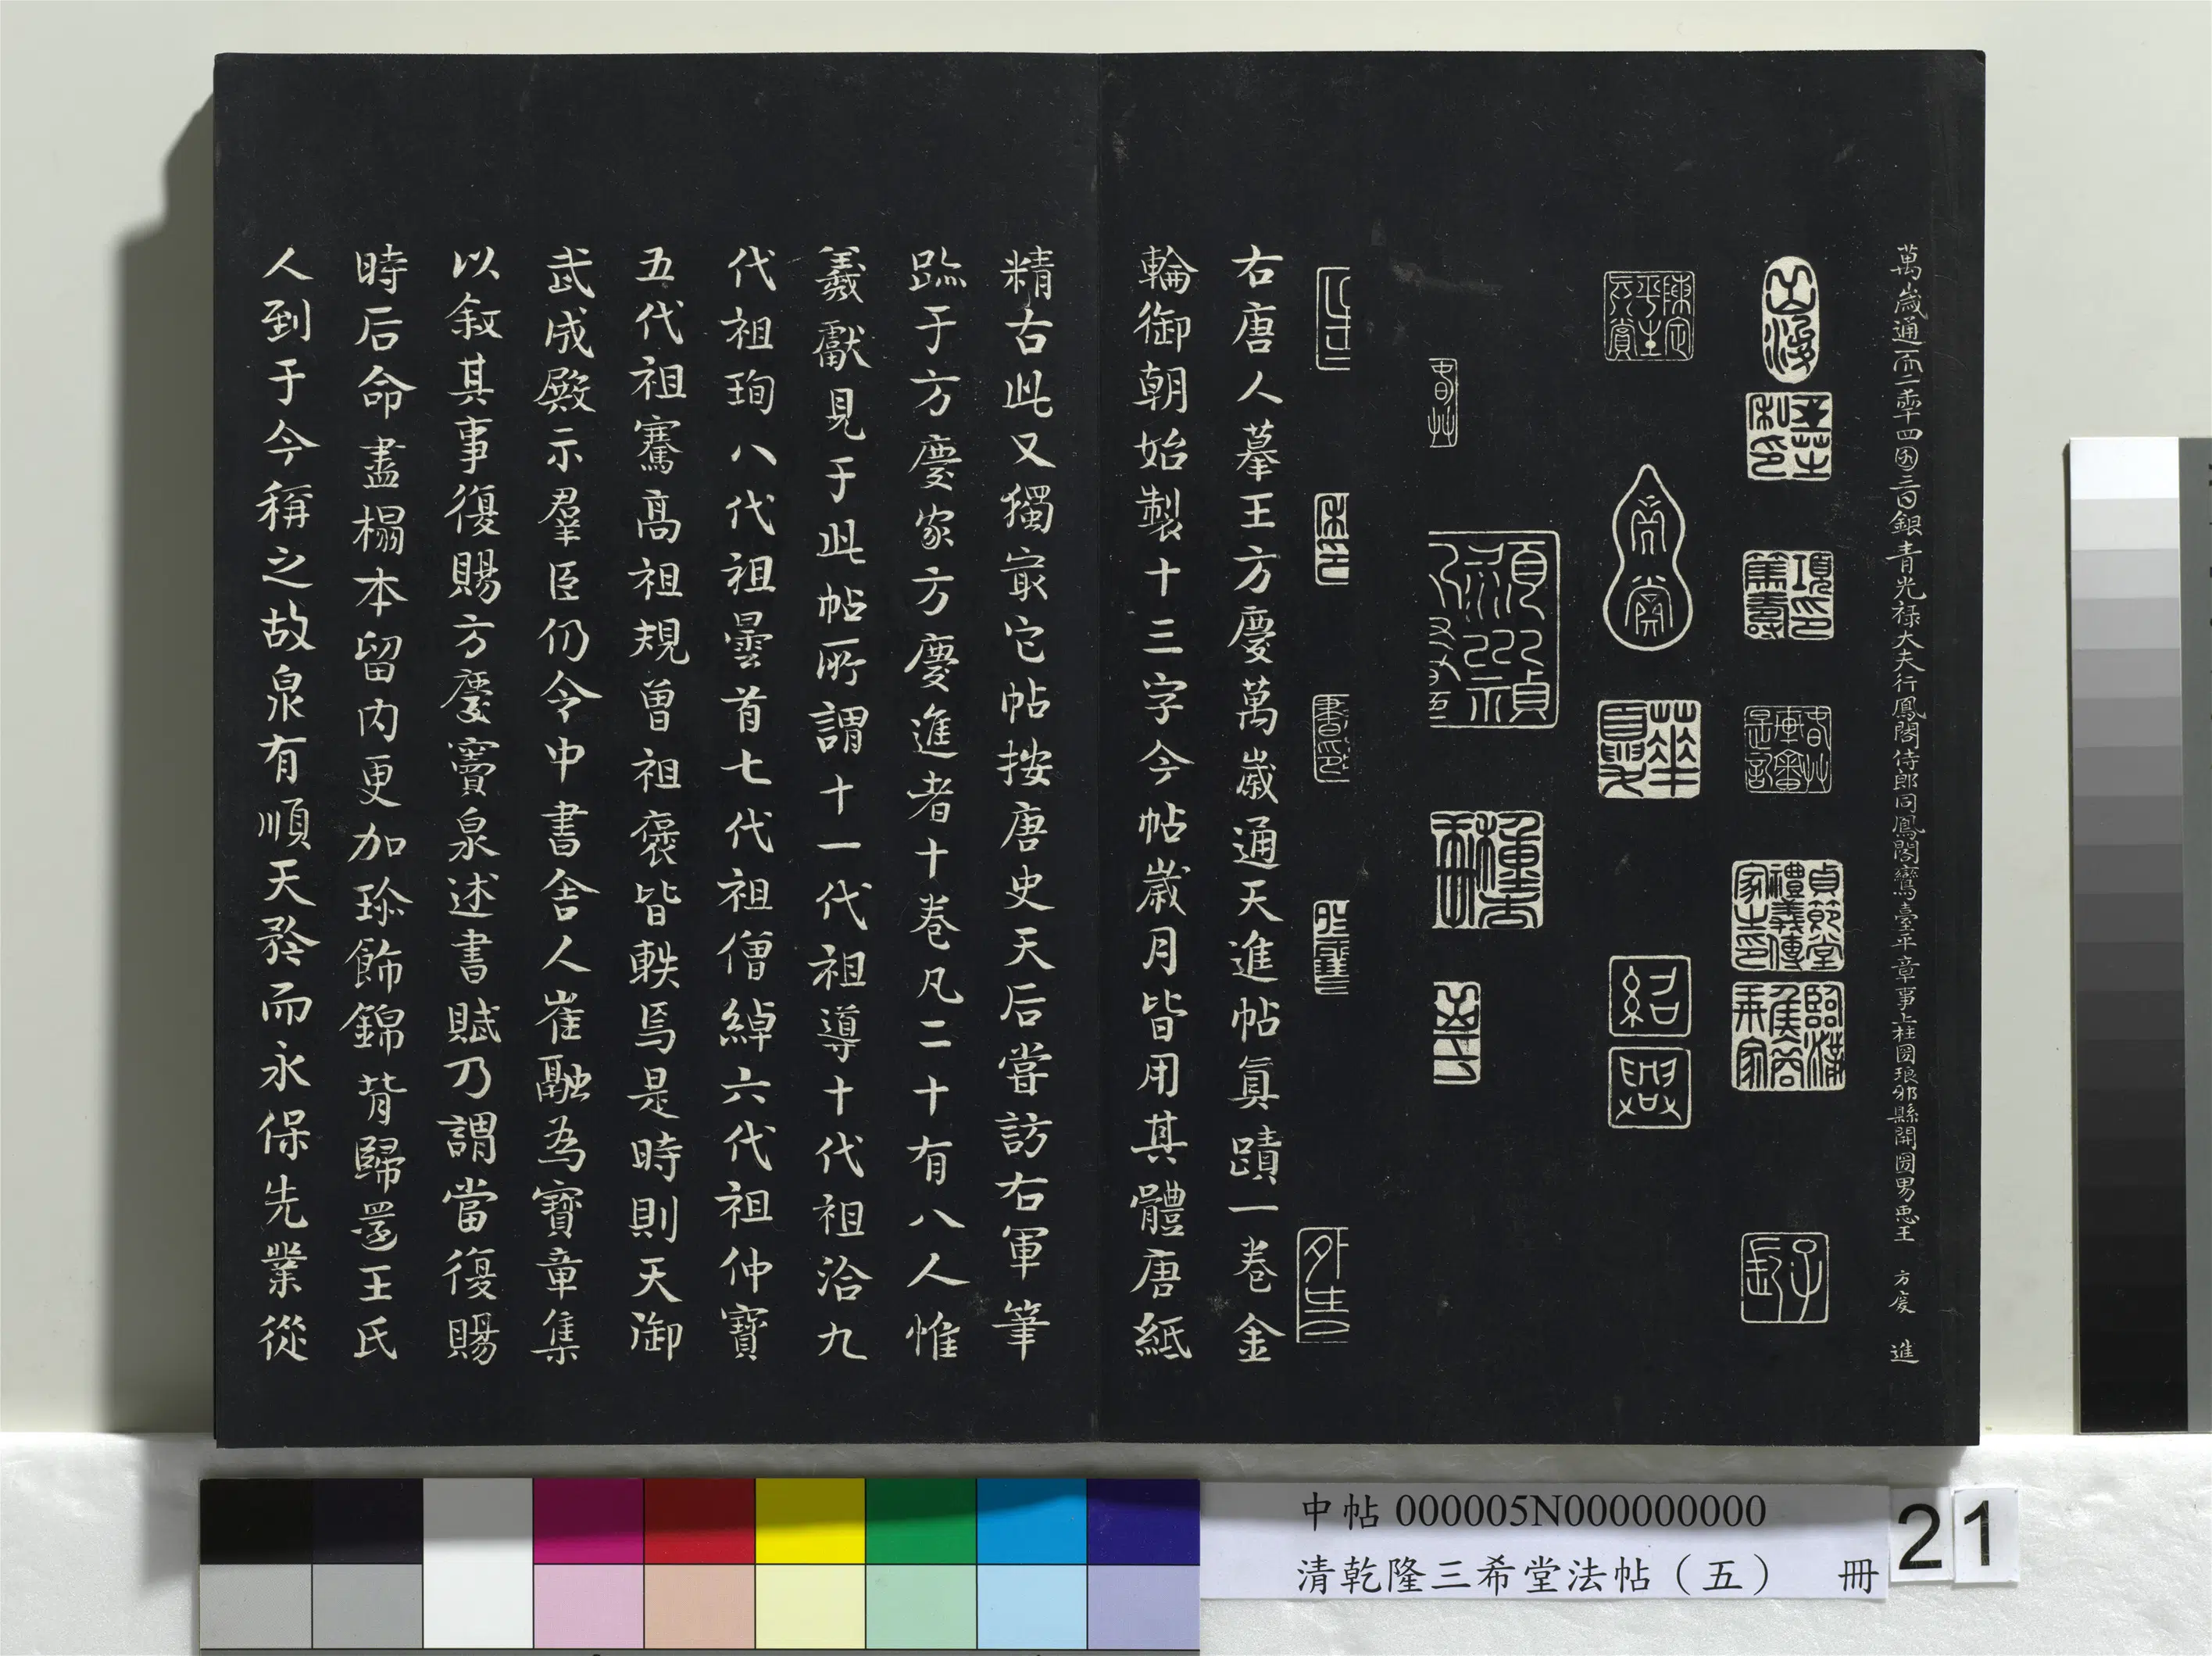 萬歲通𠀑二𠡦四囝三𡆠銀青光禄大夫行鳳閣侍郎同鳳閣鸞臺平章事上柱圀琅邪縣開圀男𢘑王 方慶 進
項篤壽印
貞節堂禮義傳家之印
子京
陳定平生真賞
華夏
紹興
右唐人摹王方慶萬歲通天進帖真蹟一卷金
輪御朝始製十三字今帖歲月皆用其體唐紙
精古此又獨最它帖按唐史天后嘗訪右軍筆
跡于方慶家方慶進者十卷凡二十有八人惟
羲獻見于此帖所謂十一代祖導十代祖洽九
代祖珣八代祖曇首七代祖僧綽六代祖仲寶
五代祖騫高祖規曾祖褒皆軼焉是時則天御
武成殿示羣臣仍令中書舍人崔融為寶章集
以敘其事復賜方慶竇泉述書賦乃謂當復賜
時后命盡榻本留內更加珍飾錦背歸還王氏
人到于今稱之故泉有順天矜而永保先業從
中帖 000005N000000000
清乾隆三希堂法帖（五） 冊
21